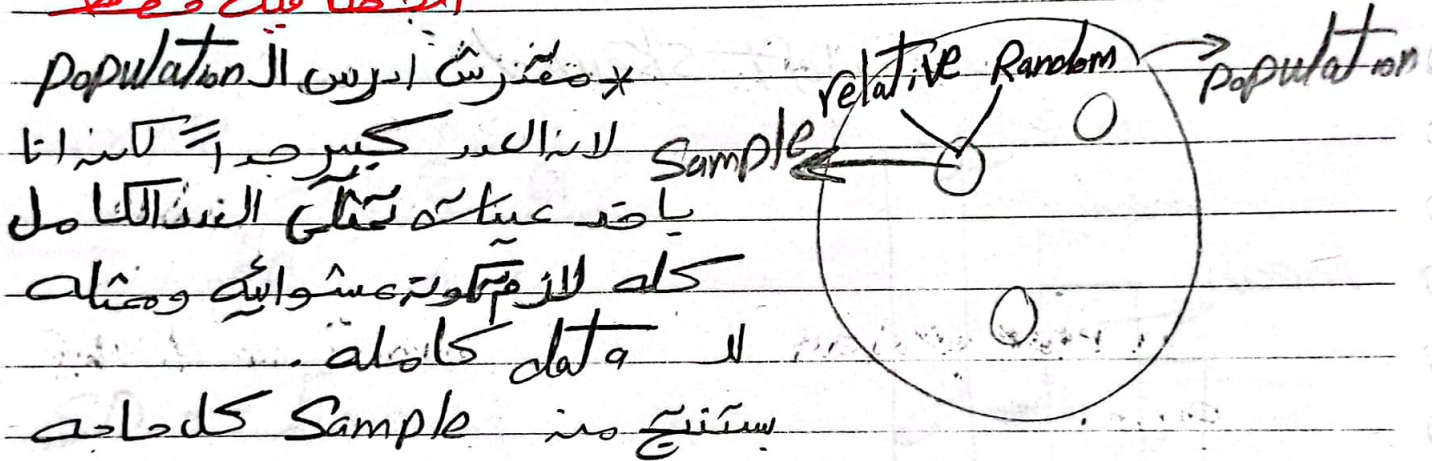 * مقدرش ادرس ال population
لان العدد كبير جداً لكن انا
باخد عينات تمثلى العدد الكامل
كله لازم تكون عشوائيه وممثله
لا data كامله .
بستنتج من Sample كل حاجه
relative Random
population
Sample